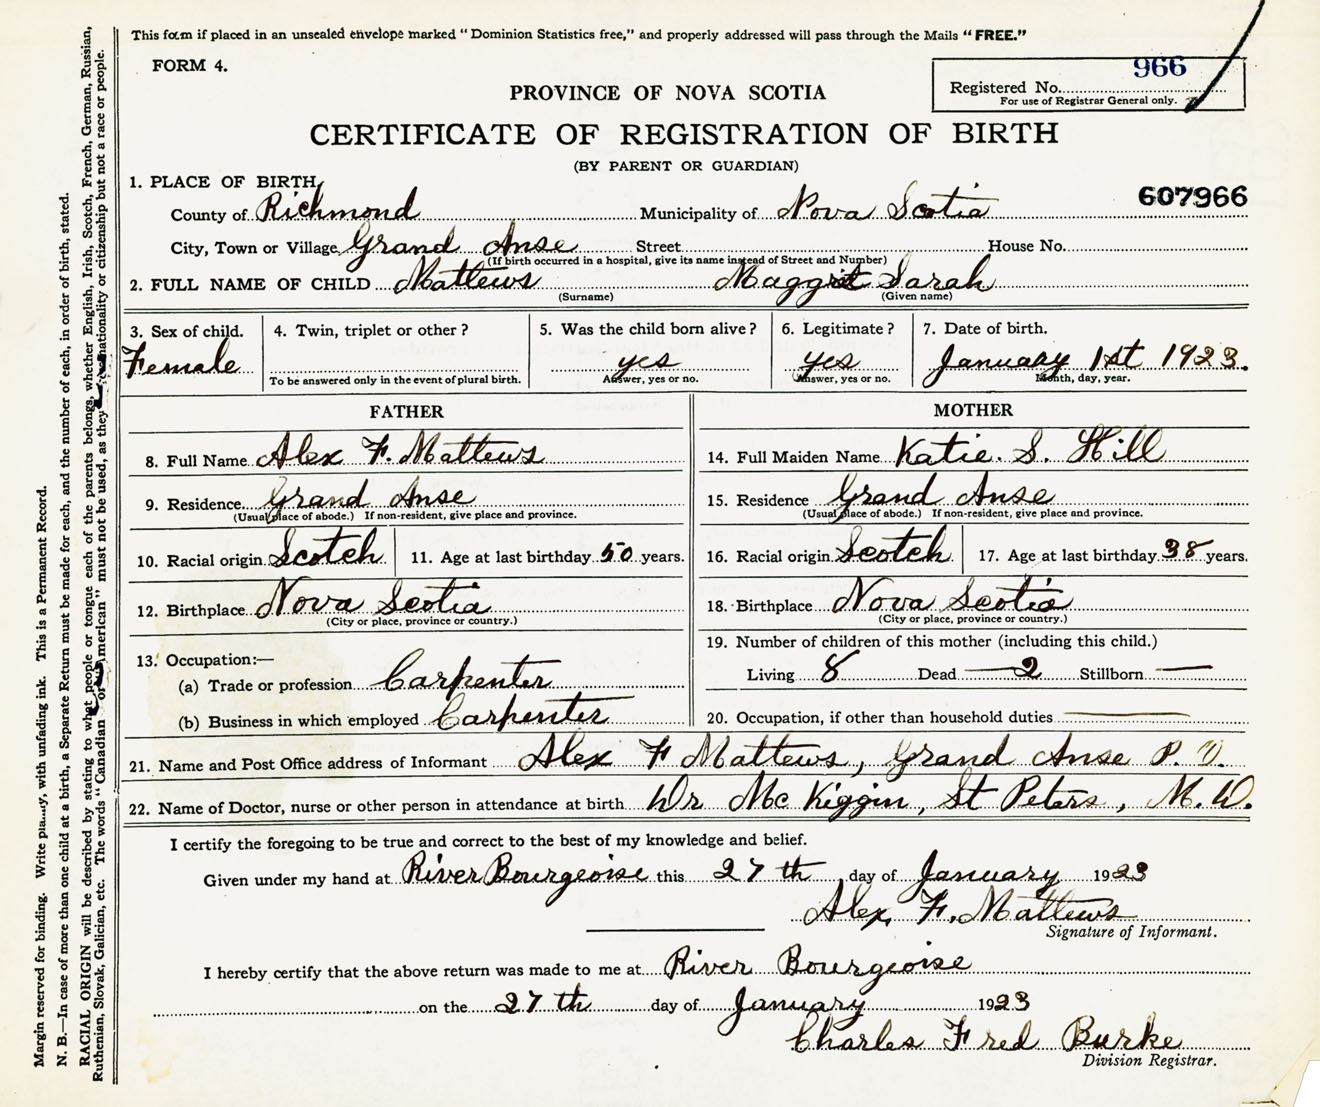 This form if placed in an unsealed envelope marked "Dominion Statistics free," and properly addressed will pass through the Mails "FREE."
FORM 4.
966
Registered No.
For use of Registrar General only.
PROVINCE OF NOVA SCOTIA
CERTIFICATE OF REGISTRATION OF BIRTH
(BY PARENT OR GUARDIAN)
1. PLACE OF BIRTH,
607966
County of Richmond Municipality of Nova Scotia
City, Town or Village Grand Anse Street House No.
(If birth occurred in a hospital, give its name instead of Street and Number)
2. FULL NAME OF CHILD Mattews Maggret Sarah
(Surname) (Given name)
3. Sex of child. Female
4. Twin, triplet or other?
To be answered only in the event of plural birth.
5. Was the child born alive? yes
Answer, yes or no.
6. Legitimate? yes
Answer, yes or no.
7. Date of birth.
January 1st 1923.
Month, day, year.
FATHER
8. Full Name Alex F. Mattews
9. Residence Grand Anse
(Usual place of abode.) If non-resident, give place and province.
10. Racial origin Scotch 11. Age at last birthday 50 years.
12. Birthplace Nova Scotia
(City or place, province or country.)
13. Occupation:—
(a) Trade or profession Carpenter
(b) Business in which employed Carpenter
MOTHER
14. Full Maiden Name Katie. S. Hill
15. Residence Grand Anse
(Usual place of abode.) If non-resident, give place and province.
16. Racial origin Scotch 17. Age at last birthday 38 years.
18. Birthplace Nova Scotia
(City or place, province or country.)
19. Number of children of this mother (including this child.)
Living 8 Dead — 2 Stillborn —
20. Occupation, if other than household duties —
21. Name and Post Office address of Informant Alex F Mattews, Grand Anse P. O.
22. Name of Doctor, nurse or other person in attendance at birth Dr Mc Kiggin, St Peters, M. D.
I certify the foregoing to be true and correct to the best of my knowledge and belief.
Given under my hand at River Bourgeoise this 27 th day of January 1923
Alex, F. Mattews
Signature of Informant.
I hereby certify that the above return was made to me at River Bourgeoise
on the 27 th day of January 1923
Charles Fred Burke
Division Registrar.
Margin reserved for binding. Write plainly, with unfading ink. This is a Permanent Record.
N. B.—In case of more than one child at a birth, a Separate Return must be made for each, and the number of each, in order of birth, stated.
RACIAL ORIGIN will be described by stating to what people or tongue each of the parents belongs, whether English, Irish, Scotch, French, German, Russian,
Ruthenian, Slovak, Galician, etc. The words "Canadian" or "American" must not be used, as they nationality or citizenship but not a race or people.